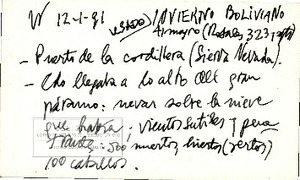 W 12-1-91 USADO INVIERNO BOLIVIANO
Almagro (Rosales 323,
- Puerto de la cordillera (Sierra Nevada).
- Cdo llegaba a lo alto del gran
páramo: nevar sobre la nieve
que había; vientos sutiles y
500 muertos, yertos (yertos)
100 caballos.